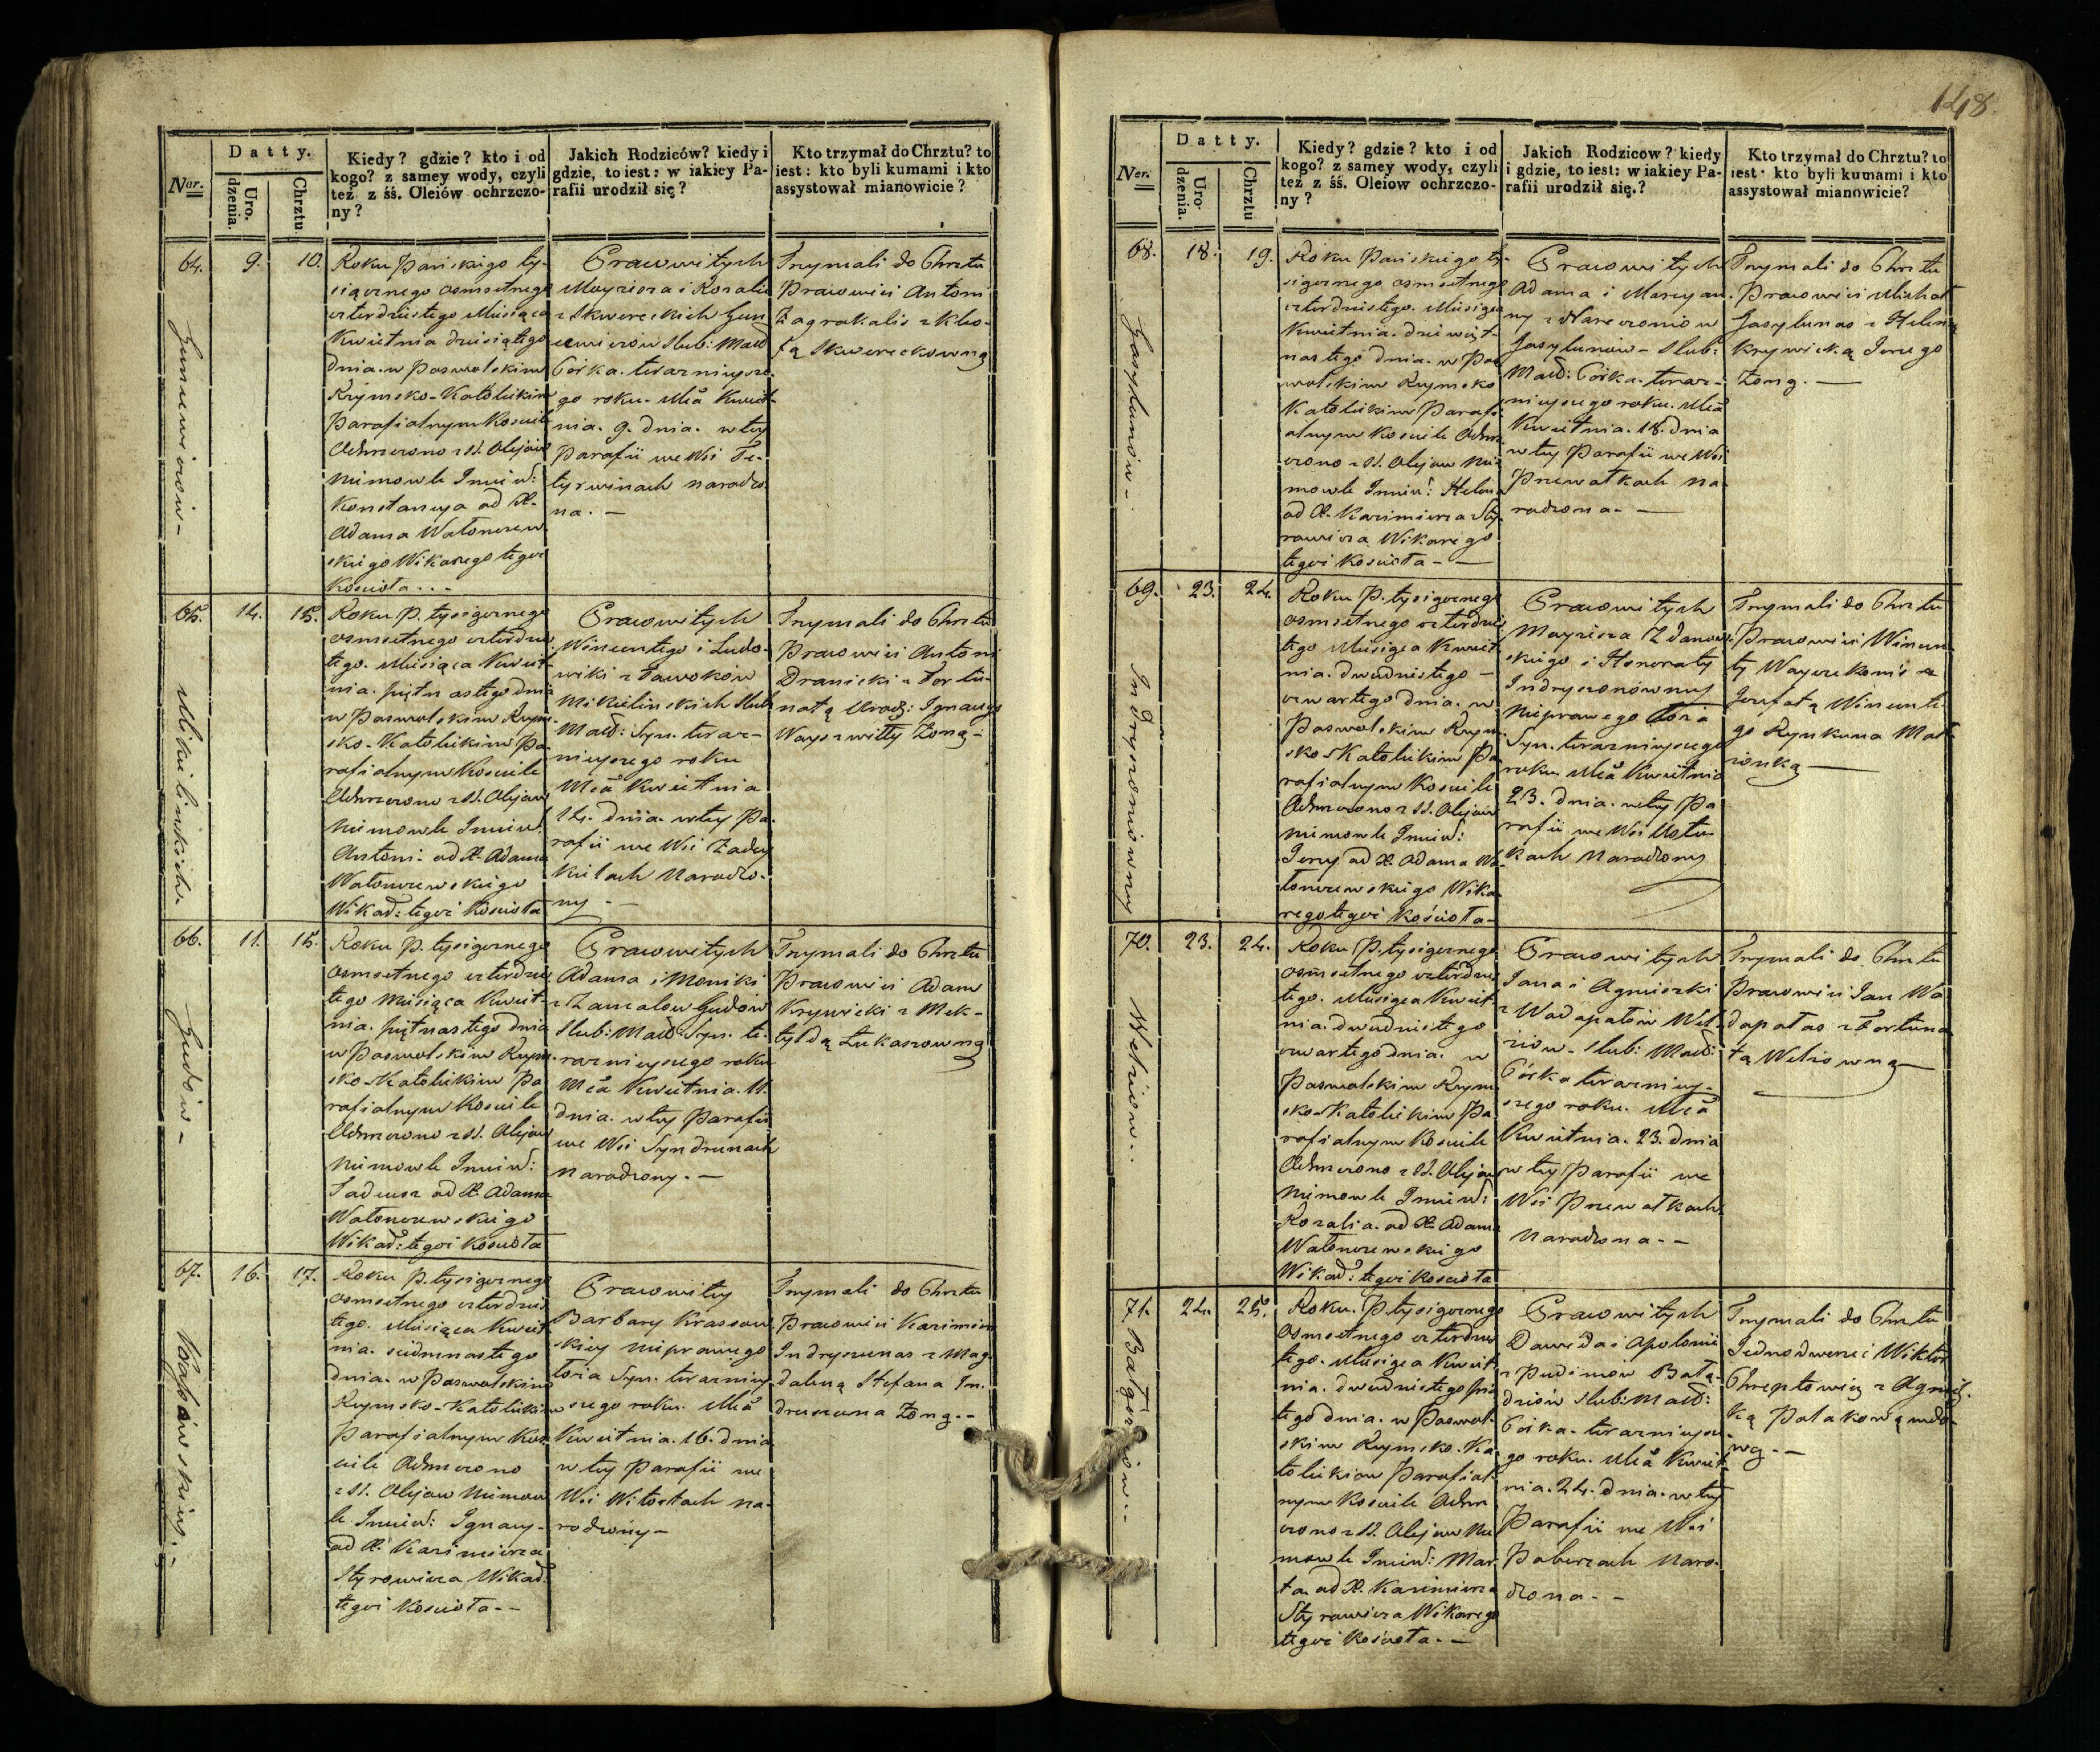 148.
Ner.
Datty.
Uro.
dzenia.
Chrztu
Kiedy? gdzie? kto i od
kogo? z samey wody, czyli
też z śś. Oleiów ochrzczo-
ny?
Jakich Rodziców? kiedy i
gdzie, to iest: w iakiey Pa-
rafii urodził się?
Kto trzymał do Chrztu? to
iest: kto byli kumami i kto
assystował mianowicie?
64.
9.
10.
Roku Pańskiego ty-
siącznego osmsetnego
czterdziestego Miesiąca
Kwietnia dziesiątego
dnia. w Poswolskim
Rzymsko-Katolickim
Parafialnym Kosciele
Ochrzczono z SS. Olejow
Niemowle Imien:
Konstancya od X.
Adama Wałonczew-
skiego Wikarego tegoz
Kościoła...
Prawowitych
Mayziera i Rozalii
z Skwereckich
Slub: Małż
Córka. teraznieysze-
go roku. Mca Kwiet-
nia. 9. dnia. w tey
Parafii we Wsi Te-
tyrwinach narodzo-
na. —
Trzymali do Chrztu
Prawowici Antoni
Zagrakalis z Kleo-
fą Skwereckowną
65.
14.
15.
Mikulinskich
Roku P. tysiącznego
osmsetnego czterdzies
tego. Miesiąca Kwiet-
nia. piętnastego dnia
w Poswolskim Rzym-
sko-Katolickim Pa-
rafialnym Kosciele
Ochrzczono z SS. Olejow
Niemowle Imien:
Antoni. od X. Adama
Wałonczewskiego
Wikar: tegoż Kościoła
Prawowitych
Wincentego i Ludo-
wiki z Ławoków
Mikulinskich Slub
Małż: Syn. teraz-
nieyszego roku
Mca Kwietnia
14. dnia. w tey Pa-
rafii we Wsi Zadey
kielach Narodzo-
ny. —
Trzymali do Chrztu
Prawowici Antoni
Dranicki z Fortu-
natą Urodz: Ignacego
Woyszwiłły Żoną-
66.
11.
15.
Gudow -
Roku P. tysiącznego
osmsetnego czterdzies
tego Miesiąca Kwiet-
nia. piętnastego dnia
w Poswolskim Rzym-
sko-Katolickim Pa
rafialnym Kosciele
Ochrzczono z SS. Olejow
Niemowle Imien:
Tadeusz od X. Adama
Wałonczewskiego
Wikar: tegoż Kościoła
Prawowitych
Adama i Moniki
z Zamalow Gudow
Slub: Małż: Syn. te-
raznieyszego roku
Mca Kwietnia. 11.
dnia. w tey Parafii
we Wsi Syndrunach
Narodzony. —
Trzymali do Chrztu
Prawowici Adam
Krywicki z Mek-
tyldą Łukaszowną
67.
16.
17.
Roku P. tysiącznego
osmsetnego czterdzies
tego. Miesiąca Kwiet
nia. siedmnastego
dnia. w Poswolskim
Rzymsko-Katolickim
Parafialnym Kos-
ciele Ochrzczono
z SS. Olejow Niemow
le Imien: Ignacy.
od X. Kazimierza
Styrowicza Wikar:
tegoż Kościoła --
Prawowitey
Barbary Krassow-
skiey nieprawego
łoża Syn. teraznie
szego roku. Mca
Kwietnia. 16. dnia
w tey Parafii we
Wsi Witortach na-
rodzony —
Trzymali do Chrztu
Prawowici Kazimierz
Indryszunas z Mag-
daleną Stefana In-
druszuna Żoną.-
Ner.
Datty.
Uro-
dzenia.
Chrztu
Kiedy? gdzie? kto i od
kogo? z samey wody, czyli
też z śś. Oleiow ochrzczo-
ny?
Jakich Rodzicow? kiedy
i gdzie, to iest: w iakiey Pa-
rafii urodził się.?
Kto trzymał do Chrztu? to
iest: kto byli kumami i kto
assystował mianowicie?
68.
18.
19.
Gasylunow -
Roku Pańskiego ty-
siącznego osmsetnego
czterdziestego. Miesiąca
Kwietnia. dziewięt-
nastego dnia. w Pos
wolskim Rzymsko
Katolickim Parafi-
alnym Kosciele Ochrz
czono z SS. Olejow Nie-
mowle Imien: Helena
od X. Kazimierza Sty-
rowicza Wikarego
tegoż Kościoła --
Prawowitych
Adama i Maryan-
ny z Narwoniow
Gasylunow - Slub:
Małż: Córka. teraz-
nieyszego roku. Mca
Kwietnia. 18. dnia
w tey Parafii we Wsi
Przewałkach na-
rodzona. —
Trzymali do Chrztu
Prawowici Michał
Gasylunas z Heleną
Krywicką Jerzego
Żoną. —
69.
23.
24.
Indryszoniowny
Roku P. tysiącznego
osmsetnego czterdzies
tego Miesiąca Kwiet-
nia. dwudziestego -
czwartego dnia. w
Poswolskim Rzym-
sko-Katolickim Pa-
rafialnym Kosciele
Ochrzczono z SS. Olejow
Niemowle Imien:
Jerzy od X. Adama Wa-
łonczewskiego Wika-
rego tegoż Kościoła-
Prawowitych
Mayziera Zdanow-
skiego i Honoraty
Indryszonówney
Nieprawego łoża
Syn. teraznieyszego
roku. Mca Kwietnia
23. dnia. w tey Pa
rafii we Wsi Ustu-
kach Narodzony
Trzymali do Chrztu
Prawowici Wincen-
ty Woyczekonis z
Jozefatą Wincente-
go Rynkuna Mał-
żonką —
70.
23.
24.
Welziow..
Roku P. tysiącznego
osmsetnego czterdzies
tego. Miesiąca Kwiet
nia. dwudziestego
czwartego dnia. w
Poswolskim Rzym
sko-Katolickim Pa-
rafialnym Kosciele
Ochrzczono z SS. Olejow
Niemowle Imien:
Rozalia. od X. Adama
Wałonczewskiego
Wikar: tegoż Kościoła
Prawowitych
Jana i Agnieszki
z Wadapałów Wel-
ziow - Slub: Małż:
Córka terazniey-
szego roku. Mca
Kwietnia. 23. dnia
w tey Parafii we
Wsi Przewałkach
Narodzona. -
Trzymali do Chrztu
Prawowici Jan Wa
dapałas z Fortuna
tą Welziowną —
71.
24.
25.
Roku. P. tysiącznego
Osmsetnego czterdzies
tego. Miesiąca Kwiet
nia. dwudziestego pią
tego dnia. w Poswol-
skim Rzymsko-Ka-
tolickim Parafial-
nym Kosciele Ochrz
czono z SS. Olejow Nie
mowle Imien: Mar-
ta. od X. Kazimierza
Styrowicza Wikarego
tegoż Kościoła. —
Prawowitych
Dawida i Apolonii
z Pudimow Bałą-
dziow Slub: Małż:
Córka. teraznieysze-
go roku. Mca Kwiet
nia. 24. dnia. w tey
Parafii we Wsi
Poberzach Naro-
dzona. -
Trzymali do Chrztu
Jednodworzec Wiktor
Chreptowicz z Agniesz-
ką Polakową wdo-
wą. —